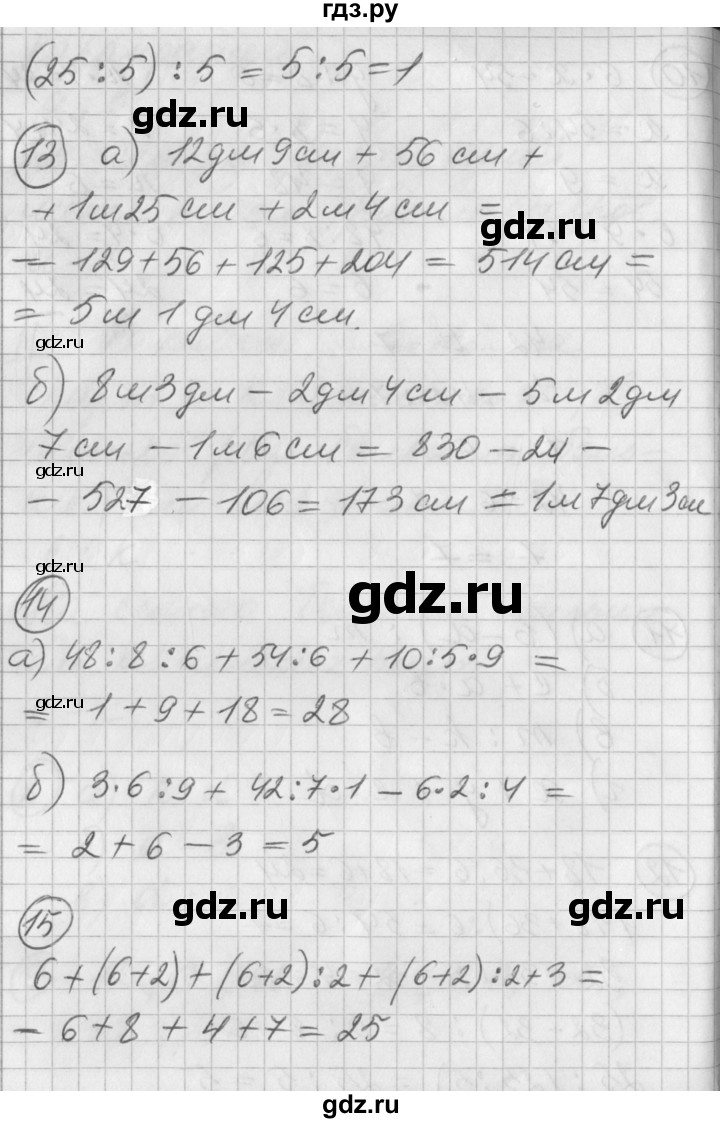 гдз.ру
(25 : 5) : 5 = 5 : 5 = 1
gdz.ru
13 а) 12дм 9см + 56 см +
+ 1м 25 см + 2м 4 см =
gdz.ru
= 129 + 56 + 125 + 204 = 514 см =
= 5м 1 дм 4 см.
gdz.ru
б) 8м 3дм – 2дм 4 см – 5 м 2дм
7 см – 1м 6 см = 830 – 24 –
gdz.ru
– 527 – 106 = 173 см = 1м 7дм 3см
gdz.ru
14
gdz.ru
а) 48 : 8 : 6 + 54 : 6 + 10 : 5 · 9 =
gdz.ru
= 1 + 9 + 18 = 28
б) 3 · 6 : 9 + 42 : 7 · 1 – 6 · 2 : 4 =
= 2 + 6 – 3 = 5
15
gdz.ru
gdz.ru
6 + (6+2) + (6+2) : 2 + (6+2) : 2 + 3 =
– 6 + 8 + 4 + 7 = 25
gdz.ru